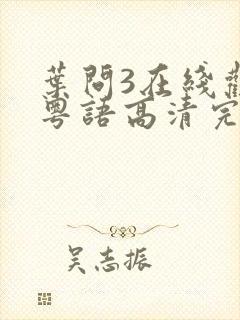 葉問3在綫
粵語高清完
吴志振